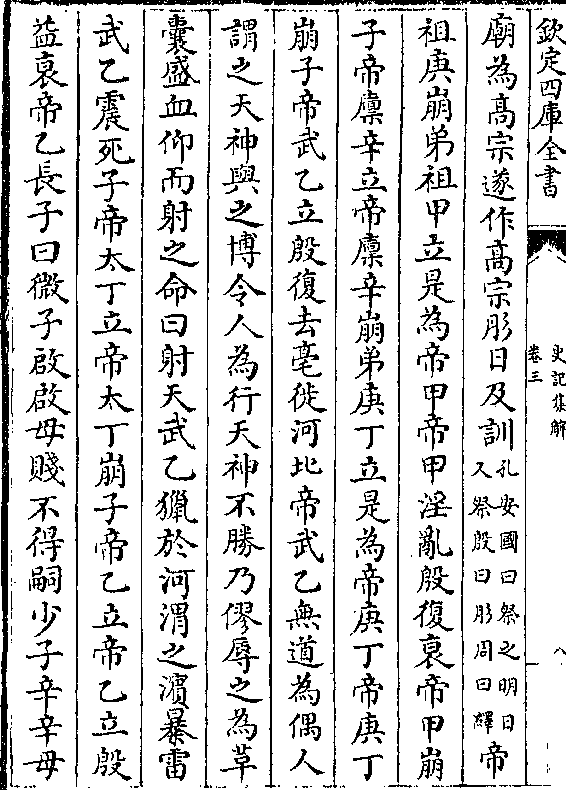 欽定四庫全書
史記集解
卷三
八
廟為髙宗遂作髙宗肜日及訓孔安國曰祭之明日又祭殷曰肜周曰繹帝
祖庚崩弟祖甲立是為帝甲帝甲淫亂殷復衰帝甲崩
子帝廩辛立帝廩辛崩弟庚丁立是為帝庚丁帝庚丁
崩子帝武乙立殷復去亳徙河北帝武乙無道為偶人
謂之天神與之博令人為行天神不勝乃僇辱之為革
囊盛血仰而射之命曰射天武乙獵於河渭之濱暴雷
武乙震死子帝太丁立帝太丁崩子帝乙立帝乙立殷
益衰帝乙長子曰微子啟啟母賤不得嗣少子辛辛母